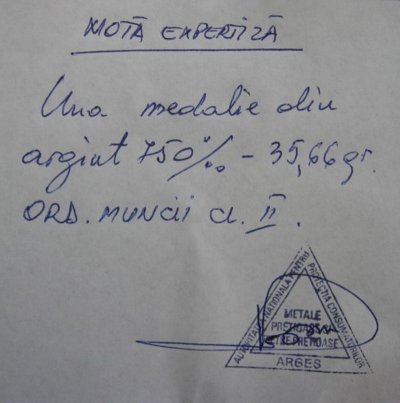 NOTĂ EXPERTIZĂ
Una medalie din
argint 750‰ – 35,66 gr.
ORD. MUNCII cl. II.
AUTORITATEA NATIONALA PENTRU
PROTECTIA CONSUMATORILOR
METALE
PRETIOASE
PIETRE PRETIOASE
ARGES